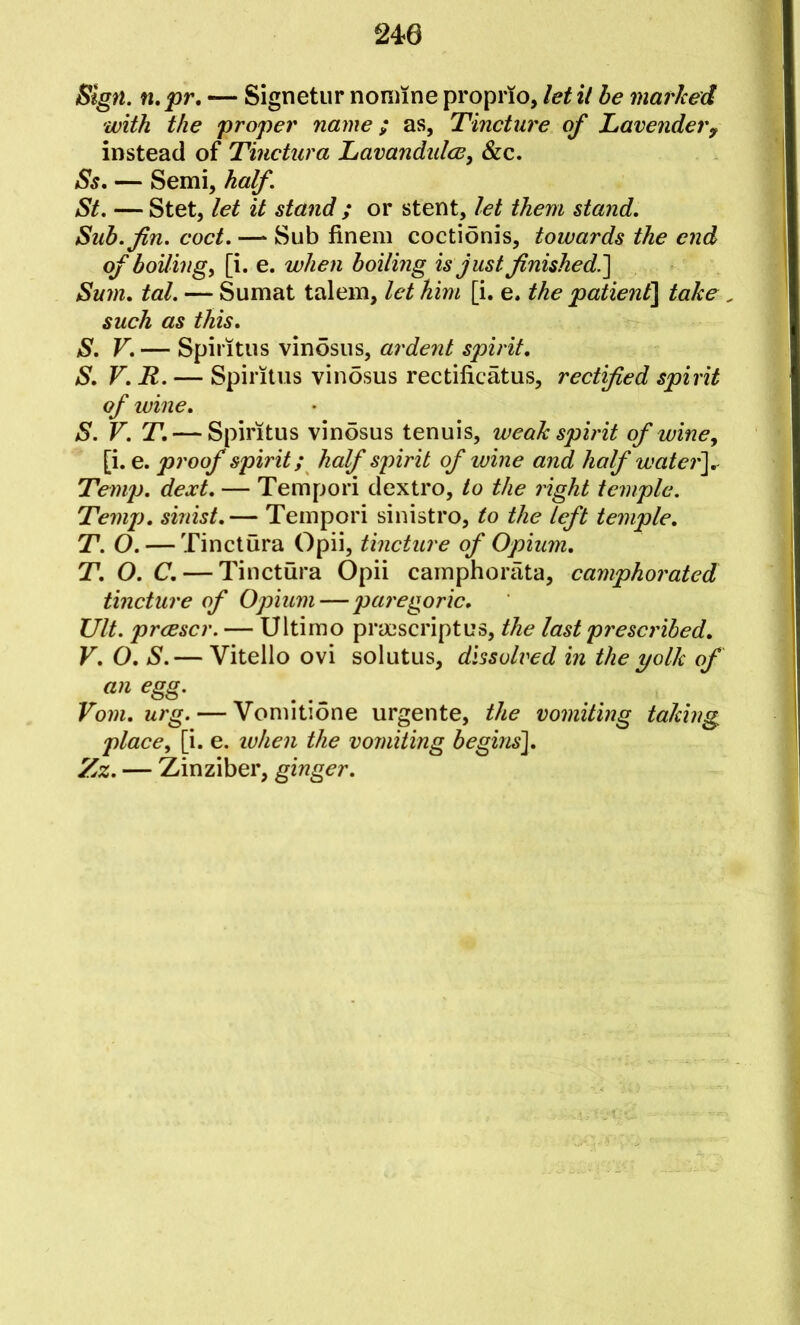 246
Sign. n. pr. — Signetur nomĭne proprĭo, let it be marked
with the proper name; as, Tincture of Lavender,
instead of Tinctura Lavandulæ, &c.
Ss. — Semi, half.
St. — Stet, let it stand; or stent, let them stand.
Sub. fin. coct. — Sub finem coctiōnis, towards the end
of boiling, [i. e. when boiling is just finished.]
Sum. tal. — Sumat talem, let him [i. e. the patient] take
such as this.
S. V. — Spirĭtus vinōsus, ardent spirit.
S. V. R. — Spirĭtus vinōsus rectificātus, rectified spirit
of wine.
S. V. T. — Spirĭtus vinōsus tenuis, weak spirit of wine,
[i. e. proof spirit; half spirit of wine and half water].
Temp. dext. — Tempori dextro, to the right temple.
Temp. sinist. — Tempori sinistro, to the left temple.
T. O. — Tinctūra Opii, tincture of Opium.
T. O. C. — Tinctūra Opii camphorāta, camphorated
tincture of Opium — paregoric.
Ult. præscr. — Ultimo præscriptus, the last prescribed.
V. O. S. — Vitello ovi solutus, dissolved in the yolk of
an egg.
Vom. urg. — Vomitiōne urgente, the vomiting taking
place, [i. e. when the vomiting begins].
Zz. — Zinziber, ginger.